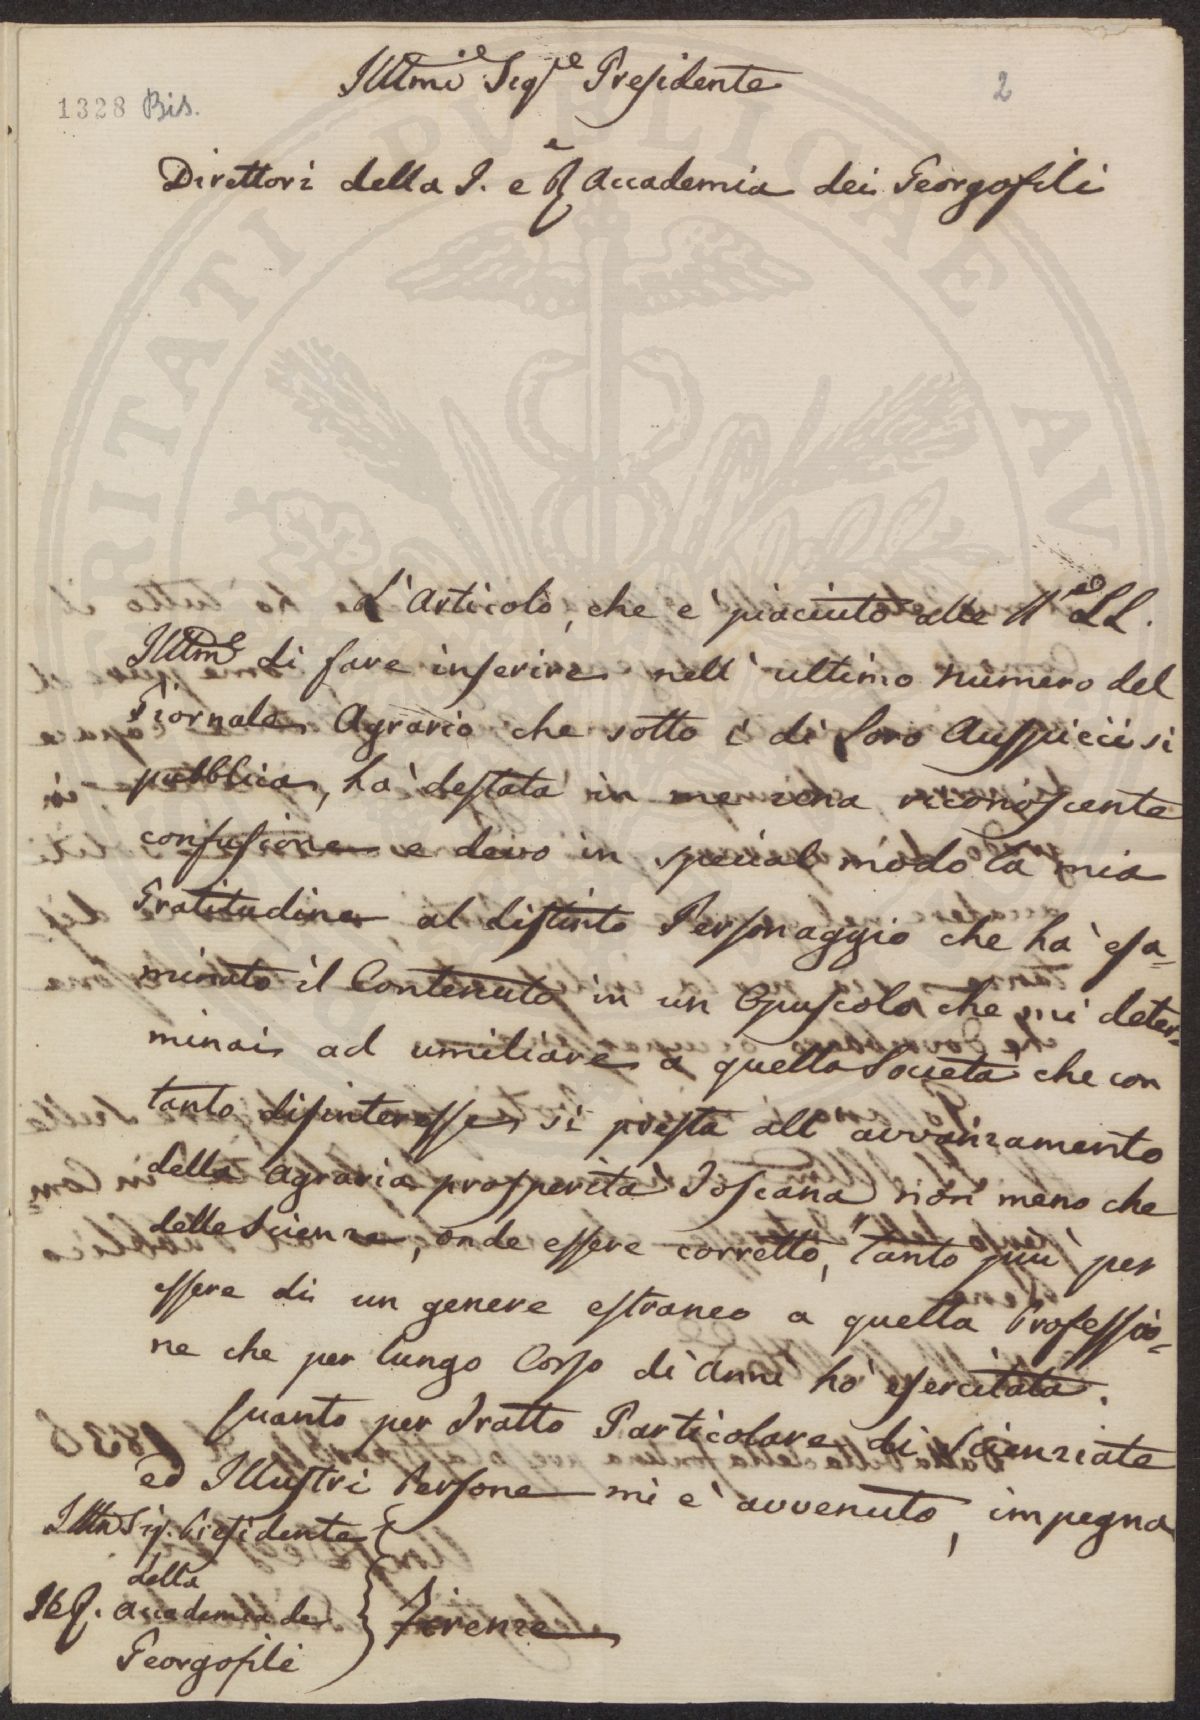 Illmi Sigre Presidente
2
1328 Bis.
e
Direttori della I. e R. Accademia dei Georgofili
L'Articolo, che e' piaciuto alle LL.
Illme di fare inserire nell' ultimo numero del
Giornale Agrario che sotto i di Loro Auspicii si
pubblica, ha' destata in me una riconoscente
confusione e devo in special modo la mia
Gratitudine al distinto Personaggio che ha' esa=
minato il Contenuto in un Opuscolo che mi deter=
minai ad umiliare a quella Società che con
tanto disinteresse si presta all' avvanzamento
della agraria prosperità Toscana non meno che
delle Scienze, onde essere corretto, tanto piu' per
essere di un genere estraneo a quella Professio=
ne che per lungo Corso di Anni ho' esercitata.
Quanto per Tratto Particolare di Scienziate
ed Illustri Persone mi e' avvenuto, impegna
Illmo Sig. Presidente
della
I. e R. Accademia dei
Georgofili
Firenze
PUBLICAE